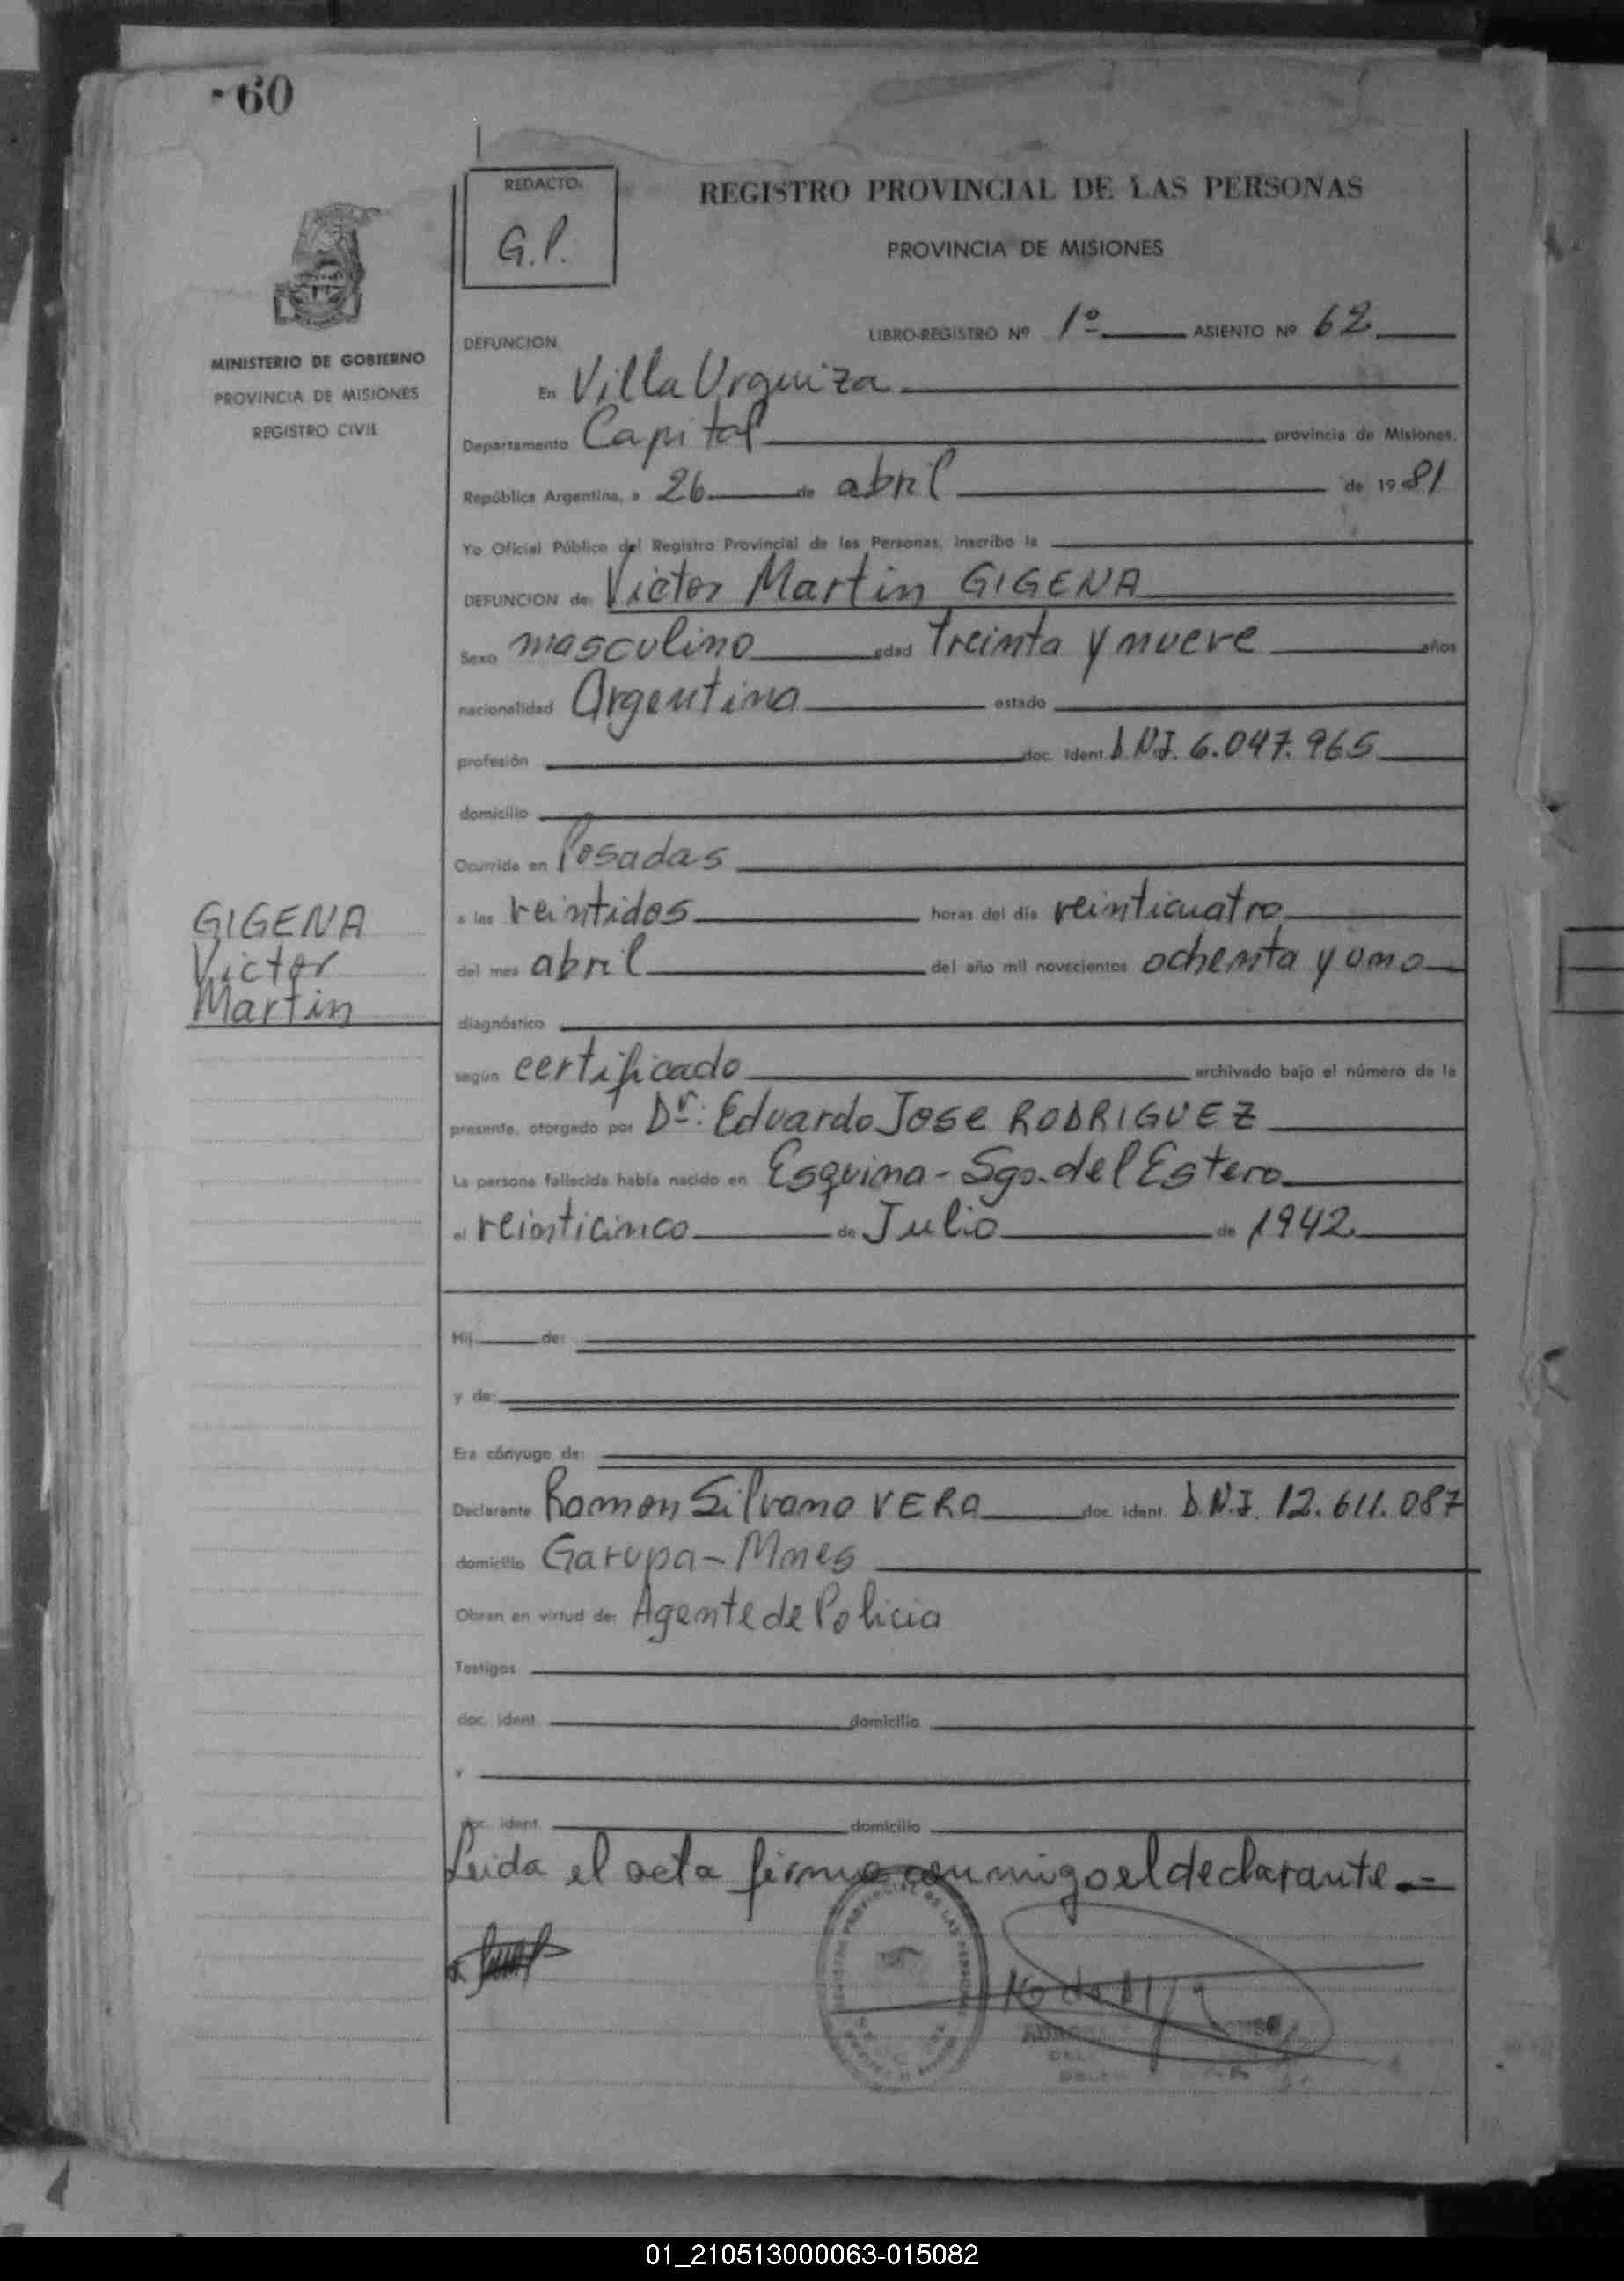 -60
REDACTO.
G.P.
REGISTRO PROVINCIAL DE LAS PERSONAS
PROVINCIA DE MISIONES
MINISTERIO DE GOBIERNO
PROVINCIA DE MISIONES
REGISTRO CIVIL
LIBRO-REGISTRO Nº 1º ASIENTO Nº 62
DEFUNCION
En Villa Urquiza
Departamento Capital provincia de Misiones,
República Argentina, a 26 de abril de 1981
Yo Oficial Público del Registro Provincial de las Personas, inscribo la
DEFUNCION de: Victor Martin GIGENA
Sexo masculino edad Treinta y nueve años
nacionalidad Argentina estado
profesión doc. Ident. D.N.I. 6.047.965
domicilio
Ocurrida en Posadas
a las veintidos horas del día veinticuatro
del mes abril del año mil novecientos ochenta y uno
GIGENA
Victor
Martin
diagnóstico
según certificado archivado bajo el número de la
presente, otorgado por Dr: Eduardo Jose RODRIGUEZ
La persona fallecida había nacido en Esquina - Sgo. del Estero
el veinticinco de Julio de 1942
Hij de:
y de:
Era cónyuge de:
Declarante Ramon Silvano VERA doc. ident. D.N.I. 12.611.087
domicilio Garupa - Mnes
Obran en virtud de: Agente de Policia
Testigos
doc. ident. domicilio
y
doc. ident. domicilio
Leida el acta firma conmigo el declarante.=
01_210513000063-015082